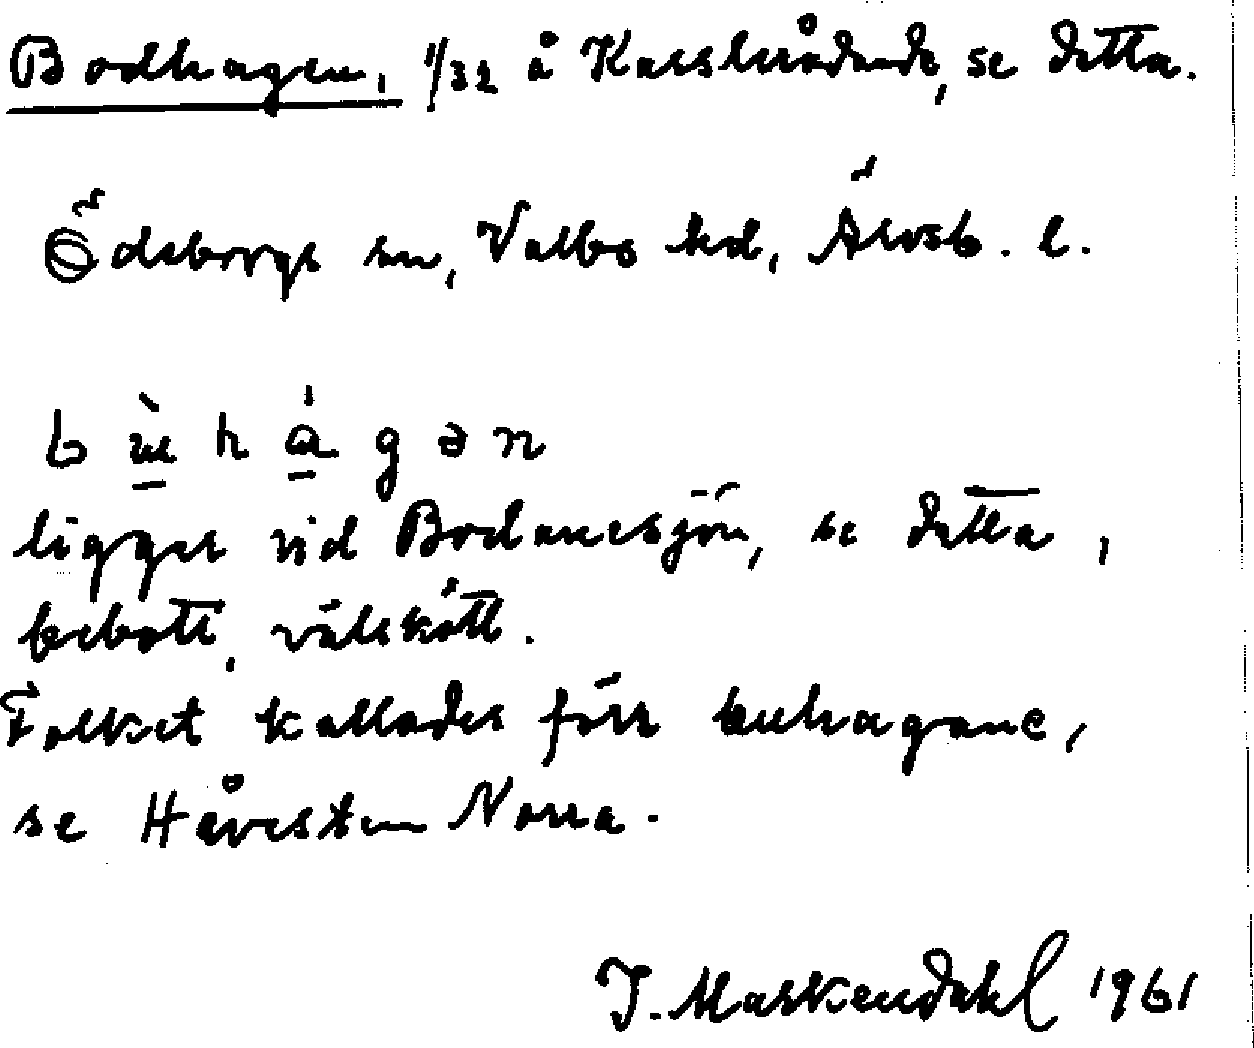 Bodhagen, 1/32 å Kasslerådande, se detta.
Ödsborgs sn, Valbo hd, Älvsb. l.
b ù h á g ə n
ligger vid Bodanesjön, se detta,
bebott, välskött.
Folket kallades förr buhagane,
se Håvesten Norra.
J. Maskendahl 1961